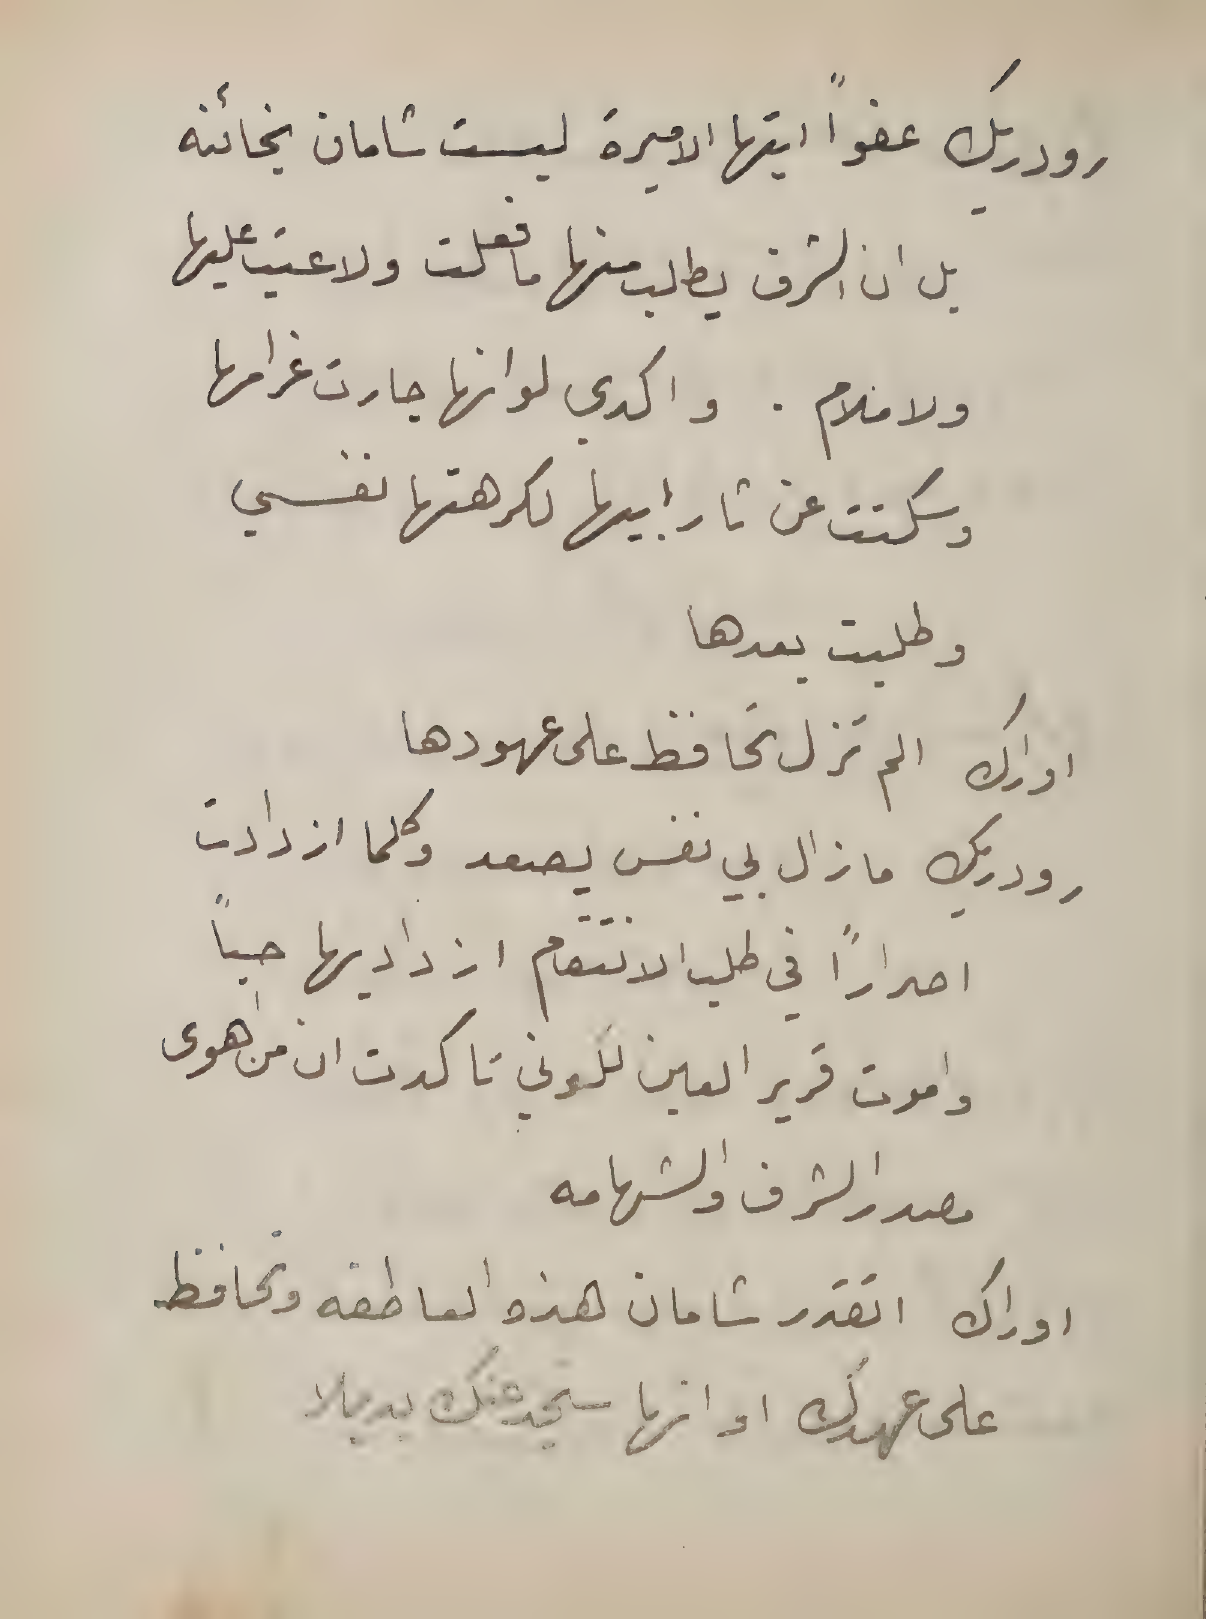 رودريك عفواً ايتها الاميرة ليست شامان بخائنه
بل ان الشرف يطلب منها ما فعلت ولا عتب عليها
ولا ملام . واكدي لو انها جارت غرامها
وسكتت عن ثار ابيها لكرهتها نفسي
وطلبت بعدها
اوراك الم تزل تحافظ على عهودها
رودريك مازال بي نفس يصعد وكلما ازدادت
اصراراً في طلب الانتقام ازداد بها حباً
واموت قرير العين لكوني تاكدت ان من اهوى
مصدر الشرف والشهامه
اوراك اتقدر شامان هذه العاطفه وتحافظ
على عهدك او انها ستجد عنك بديلا